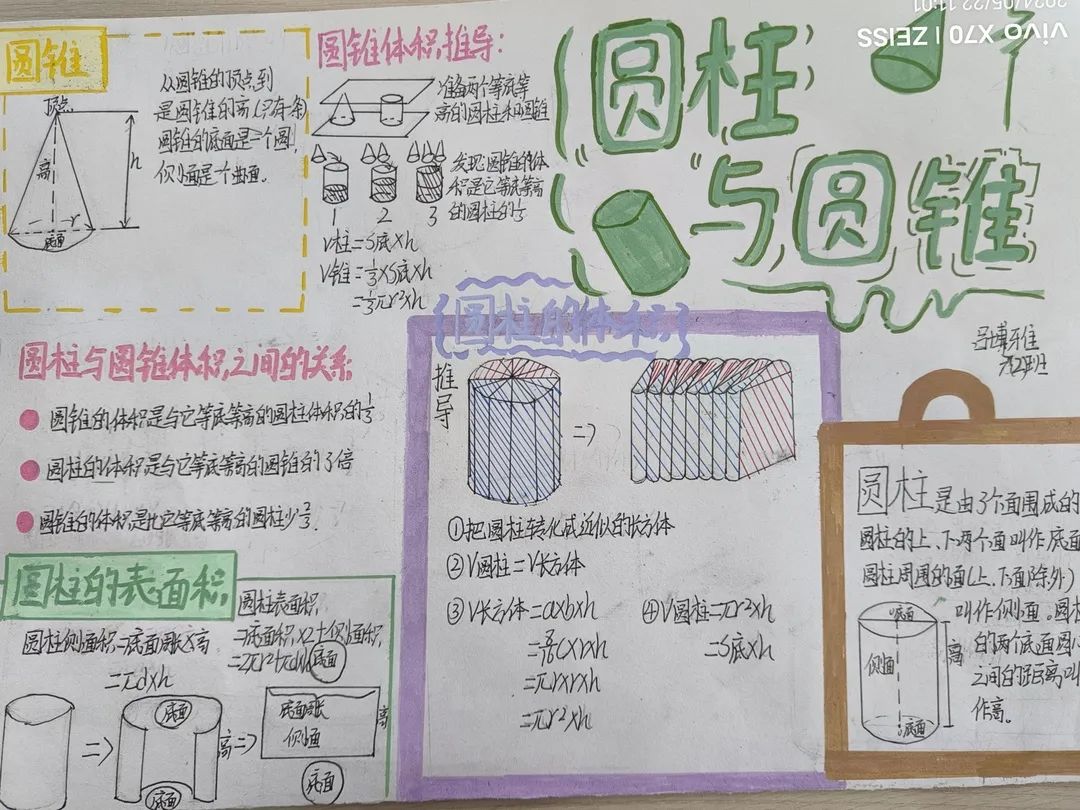 圆锥
顶点
高
h
r
底面
从圆锥的顶点到
是圆锥的高(只有一条)
圆锥的底面是一个圆,
侧面是个曲面。
圆锥体积推导:
准备两个等底等
高的圆柱和圆锥
发现:圆锥的体
积是它等底等高
的圆柱的1/3
1 2 3
V柱=S底×h
V锥=1/3×S底×h
=1/3πr²×h
圆柱
与圆锥
2024/05/22 11:01
vivo X70 | ZEISS
圆柱与圆锥体积之间的关系
圆锥的体积是与它等底等高的圆柱体积的1/3
圆柱的体积是与它等底等高的圆锥的3倍
圆锥的体积是比它等底等高的圆柱少2/3.
圆柱的表面积
圆柱侧面积=底面周长×高
=πd×h
圆柱表面积
=底面积×2+侧面积
=2πr²+πdh
底面
底面
底面
高
底面周长
侧面
高
底面
圆柱的体积
推导
=>
①把圆柱转化成近似的长方体
②V圆柱=V长方体
③V长方体=a×b×h
=πr×r×h
=πr²×h
④V圆柱=πr²×h
=S底×h
圆柱是由3个面围成的
圆柱的上、下两个面叫作底面
圆柱周围的面(上、下面除外)
叫作侧面。圆柱
的两个底面圆心
之间的距离叫
作高。
底面
侧面
高
底面